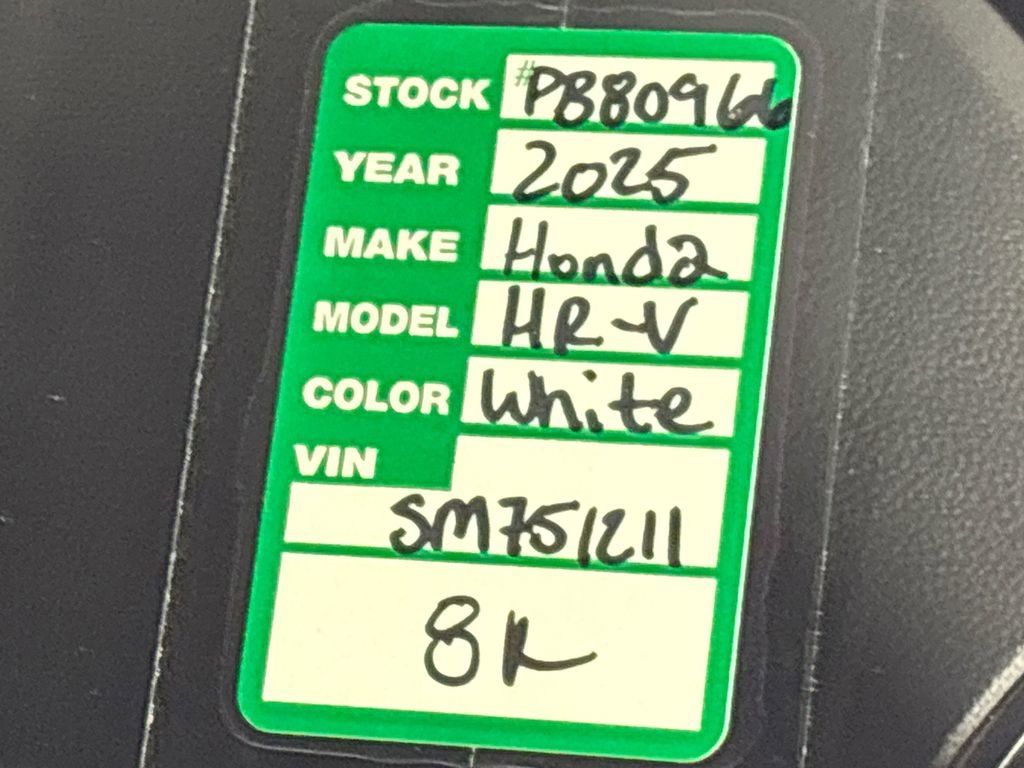 STOCK #P880966
YEAR 2025
MAKE Honda
MODEL HR-V
COLOR White
VIN
SM751211
8K